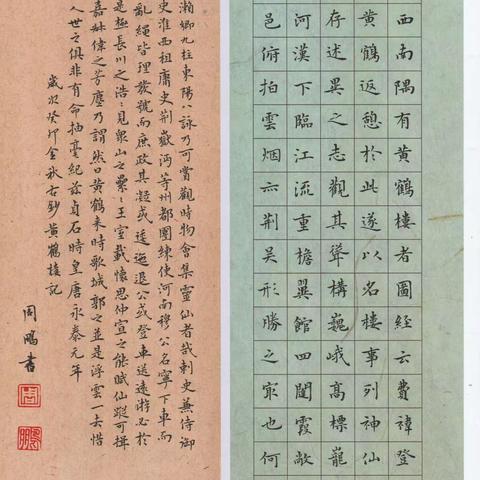 西南隅有黃鶴樓者圖經云費禕登
黃鶴返憩於此遂以名樓事列神仙
存述異之志觀其聳構巍峨高標巃
河漢下臨江流重檐翼館四闥霞敞
邑俯拍雲烟亦荊吳形勝之最也何
瀨鄉九柱東陽八詠乃可賞觀時物會集靈仙者哉刺史兼侍御
史淮西租庸史荊嶽沔等州都團練使河南穆公名寧下車而
亂繩皆理發號而庶政其凝或逶迤退公或登車送遠游必於
是極長川之浩〻見衆山之纍〻王室載懷思仲宣之能賦仙蹤可揖
嘉叔偉之芳塵乃謂然曰黃鶴來時歌城郭之並是浮雲一去惜
人世之俱非有命抽毫紀兹貞石時皇唐永泰元年
歲次癸卯金秋古鈔黃鶴樓記
周鵬書
周
鵬